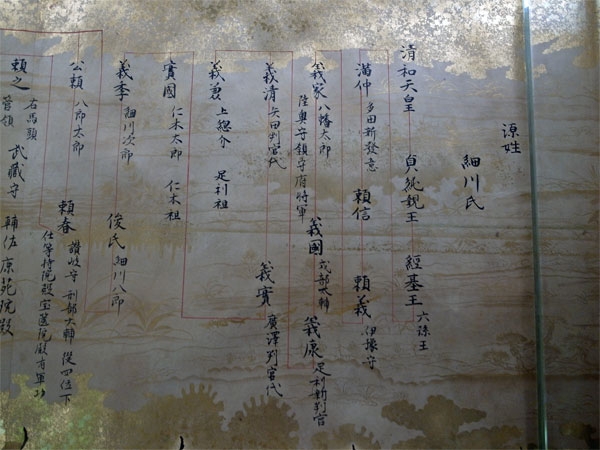 源姓
細川氏
清和天皇 貞純親王 經基王 六孫王
滿仲 多田新發意 賴信 賴義 伊豫守
義家 八幡太郎 陸奥守鎮守府将軍 義國 式部太輔 義康 足利新判官
義清 矢田判官代 義實 廣澤判官代
義兼 上総介 足利祖
實國 仁木太郎 仁木祖
義季 細川次郎 俊氏 細川八郎
公頼 八郎太郎 頼春 讃岐守 刑部大輔 従四位下
仕等持院殿宝篋院殿有軍功
頼之 右馬頭 管領 武蔵守 輔佐